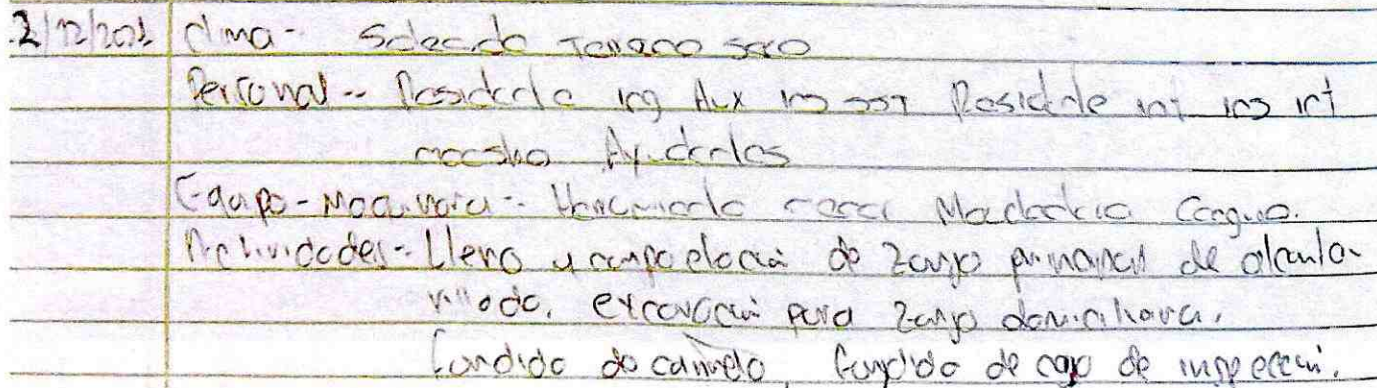 2/12/2021 Clima- Soleado Terreno seco
Personal -- Residente ing Aux ing SST Residente int ing int
maestro Ayudantes
Equipo-Maquinaria -- Herramienta menor
Actividades- Lleno y compactación de zanja principal de alcanta-
rillado. excavación para zanja domiciliaria.
fundida de fundida de caja de inspección.